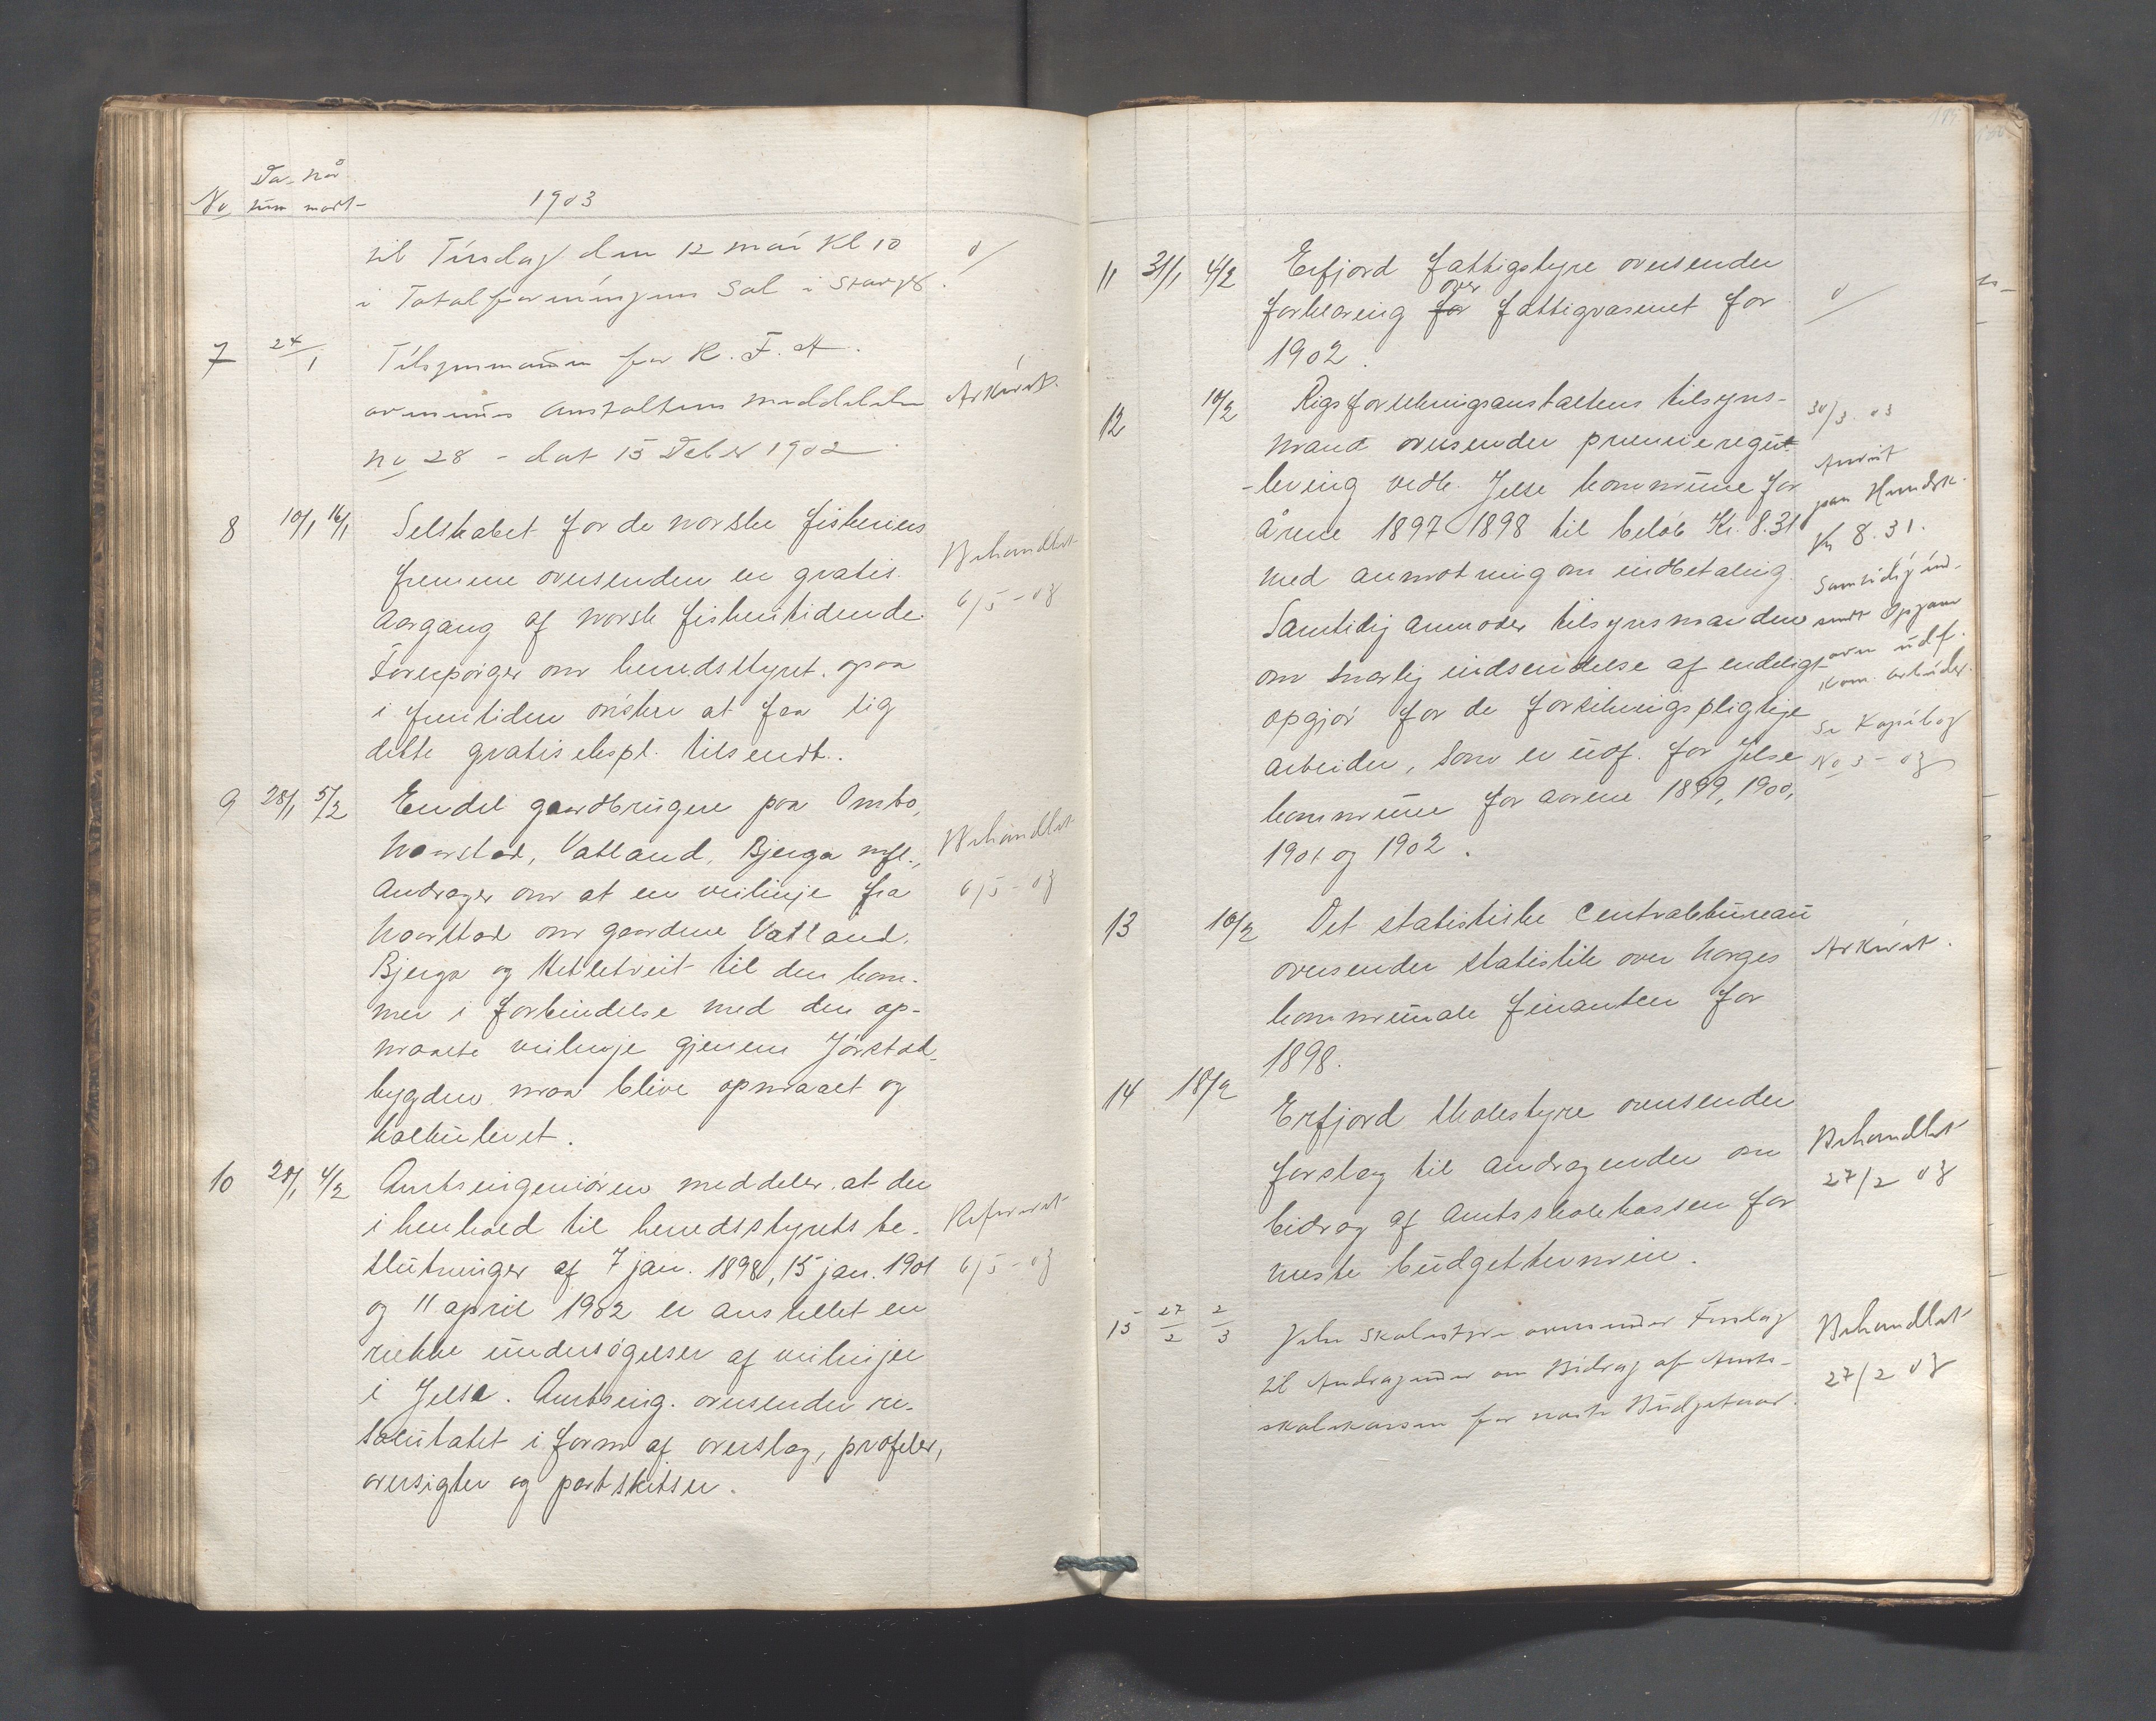 No Da- når
tum modt-
1903
til Tirsdag den 12 mai Kl 10
i Totalforeningens Sal i Stavgr.
7 24/1 Tilsynsmanden for R. F. A.
oversender Anstaltens meddelelse Arkivert.
No 28 - dat 15 Decbr 1902
8 10/1 16/1 Selskabet for de norske fiskeriers Behandlet
fremme oversender en gratis 6/5-03
aargang af norsk fiskeritidende.
Forespørger om herredsstyret ogsaa
i fremtiden ønsker at faa sig
dette gratis ekspl. tilsendt.
9 28/1 5/2 Endel gaardbrugere paa Ombo,
Haarstad, Vatland, Bjerga mfl., Behandlet
andrager om at en veilinje fra 6/5-03
Haarstad om gaardene Vatland,
Bjerga og Ketletveit til den kom-
mer i forbindelse med den op-
maalte veilinje gjenem Jørstad-
bygden maa blive opmaalt og
kalkuleret.
10 28/1 4/2 Amtsingeniøren meddeler at der
i henhold til herredsstyrets be- Refereret
slutninger af 7 jan. 1898, 15 jan. 1901 6/5-03
og 11 april 1902 er anstillet en
række undersøgelser af veilinjer
i Jelse. Amtsing. oversender re-
sultatet i form af overslag, profiler,
oversigter og kartskitser.
11 31/1 4/2 Erfjord fattigstyre oversender
forklaring for over fattigvæsenet for
1902.
12 10/2 Rigsforsikringsanstaltens tilsyns- 30/3 03
mand oversender præmieregu- Anvist
-lering vedk. Jelse kommune for paa Herredsk.
årene 1897 1898 til beløb Kr. 8.31 Kr 8.31.
med anmodning om indbetaling. Samtidig ind-
Samtidig anmoder tilsynsmanden sendt Opgave
om snarlig indsendelse af endeligt over udf.
opgjør for de forsikringspligtige kom. arbeider.
arbeider, som er udf. for Jelse Se Kopibog
kommune for aarene 1899, 1900, No 3 - 03
1901 og 1902.
13 10/2 Det statistiske Centralbureau
oversender statistik over Norges Arkivert.
kommunale finantser for
1898.
14 18/2 Erfjord skolestyre oversender
forslag til andragender om Behandlet
bidrag af Amtsskolekassen for 27/2 03
neste budgettermin.
15 27/2 2/3 Jelse Skolestyre oversender Forslag Behandlet
til Andragender om Bidrag af Amts- 27/2 03
skolekassen for næste Budgetaar.